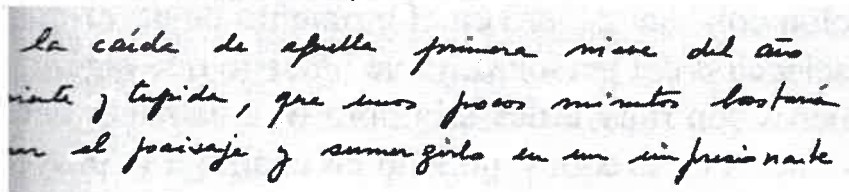 la caída de aquella primera nieve del año
y tupida, que unos pocos minutos bastaría
el paisaje y sumergirlo en un impresionante